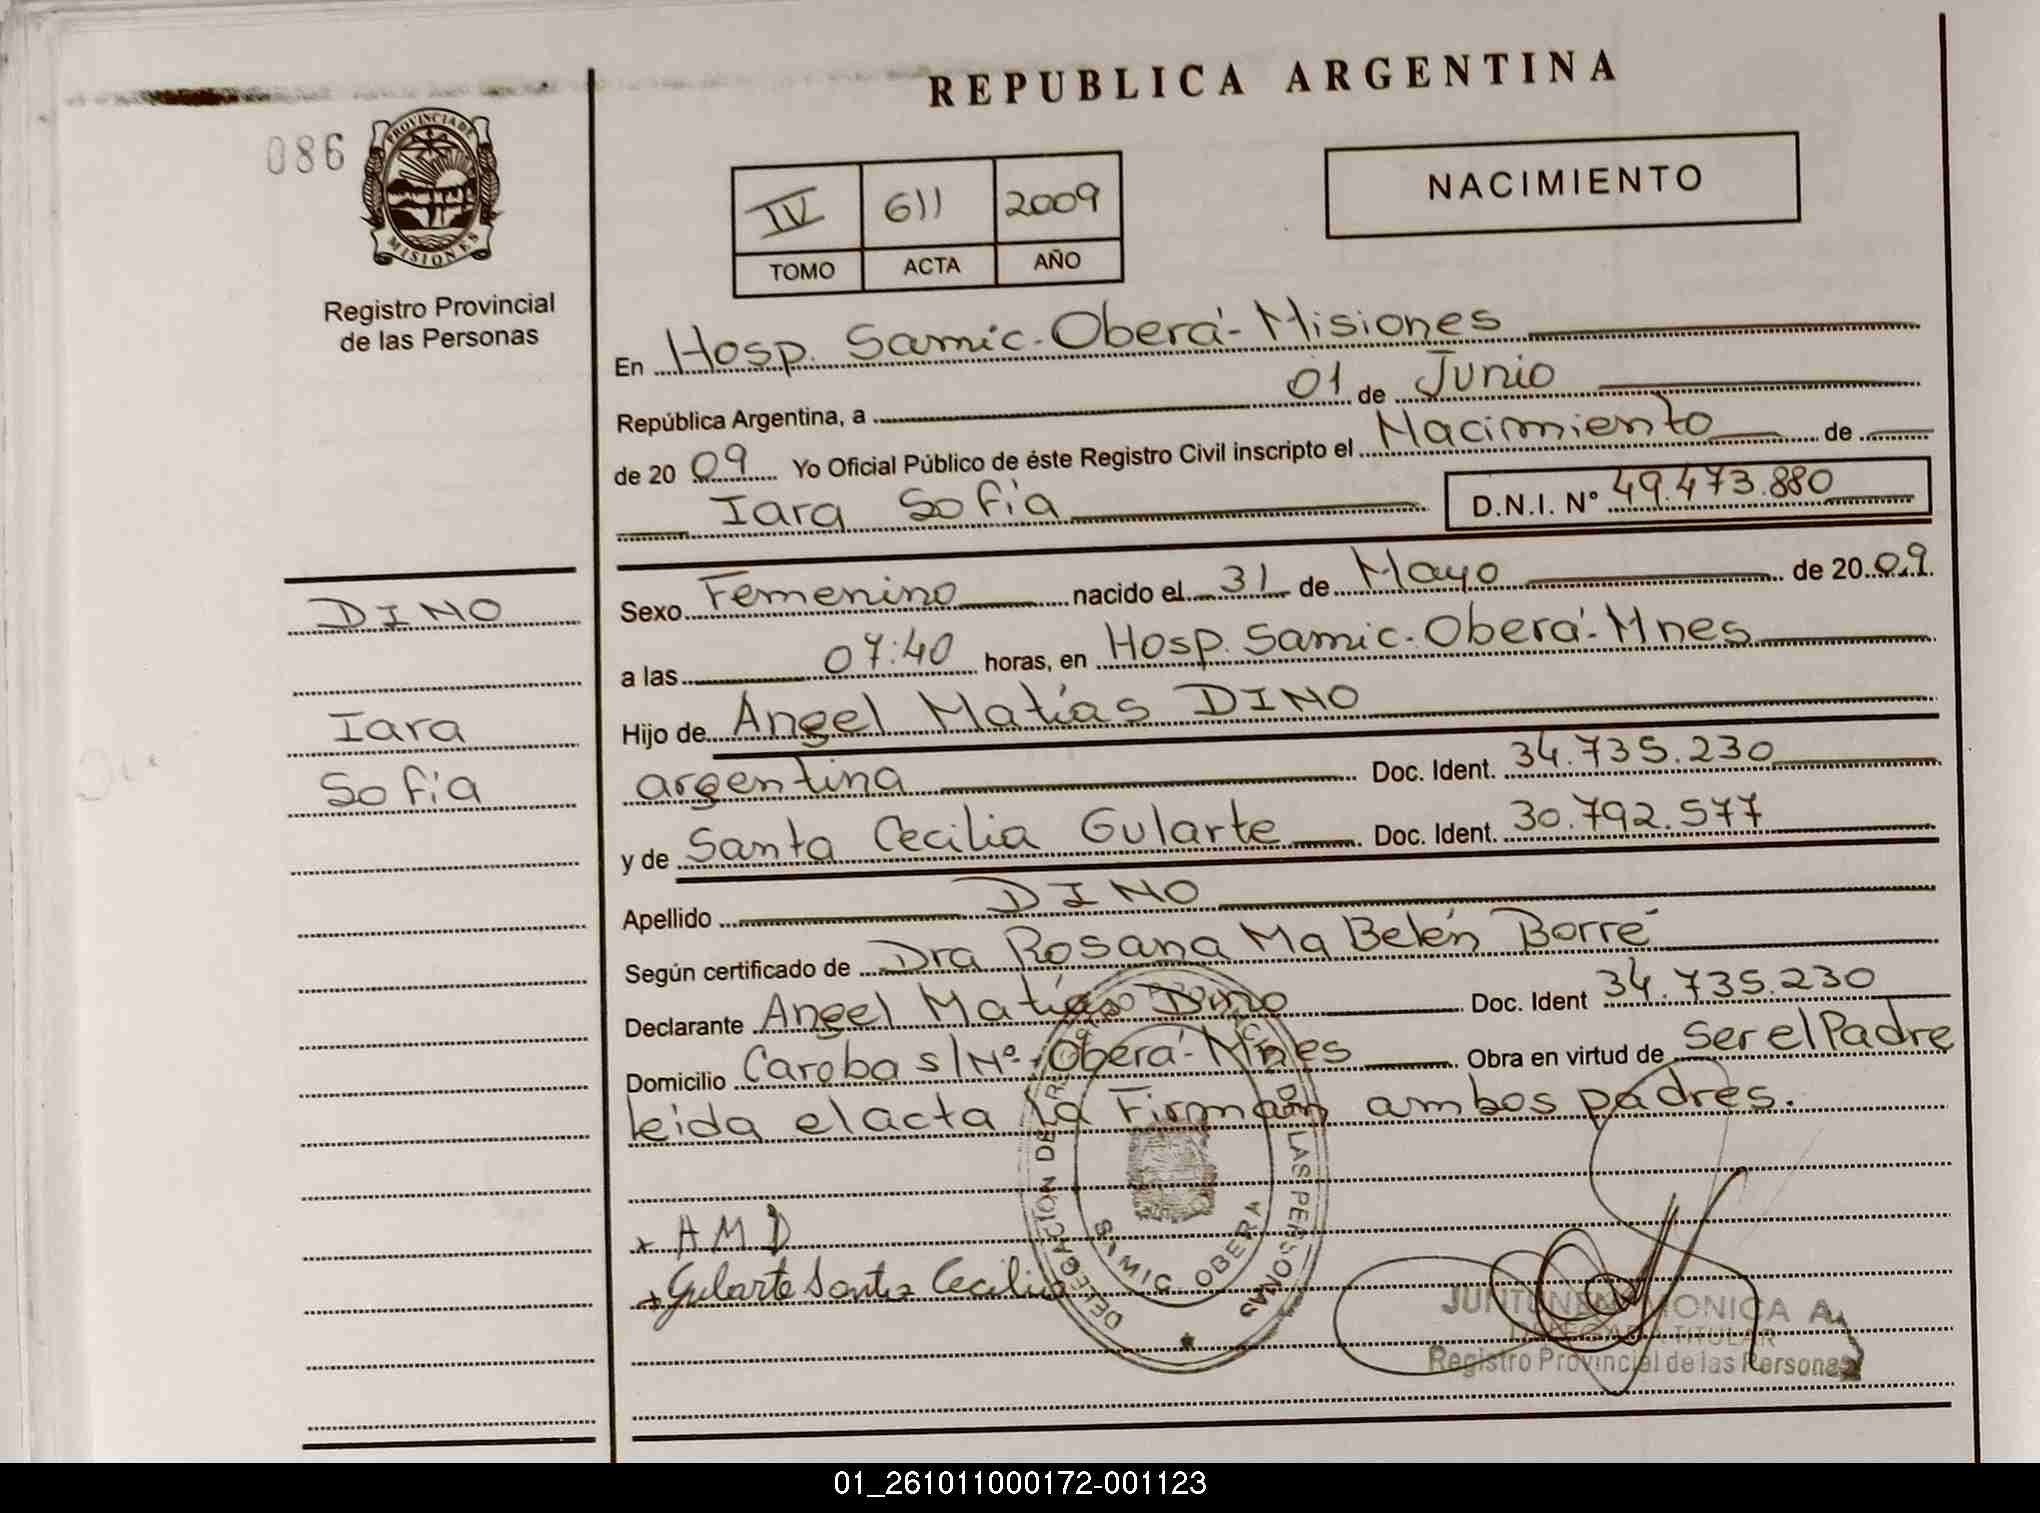 REPUBLICA ARGENTINA
086
PROVINCIA DE
MISIONES
Registro Provincial
de las Personas
IV 611 2009
TOMO ACTA AÑO
NACIMIENTO
En Hosp. Samic. Oberá - Misiones
República Argentina, a 01 de Junio
de 20 09 Yo Oficial Público de éste Registro Civil inscripto el Nacimiento de
Iara Sofía D.N.I. N° 49.473.880
DINO
Iara
Sofía
Sexo Femenino nacido el 31 de Mayo de 20 09.
a las 07:40 horas, en Hosp. Samic. Oberá - Mnes
Hijo de Angel Matías DINO
argentina Doc. Ident. 34.735.230
y de Santa Cecilia Gularte Doc. Ident. 30.792.577
Apellido DINO
Según certificado de Dra Rosana Ma Belén Borré
Declarante Angel Matías Dino Doc. Ident 34.735.230
Domicilio Caroba s/Nº. Oberá - Mnes Obra en virtud de ser el Padre
leida el acta la Firman ambos padres.
x AMD
x Gularte Santa Cecilia
DELEGACION DEL DE LAS PERSONAS
SAMIC OBERA
JUNTUNEN MONICA A.
DELEGADA TITULAR
Registro Provincial de las Personas
01_261011000172-001123